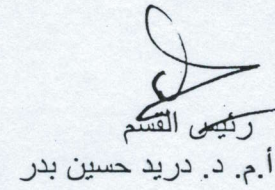 رئيس القسم
أ.م. د. دريد حسين بدر